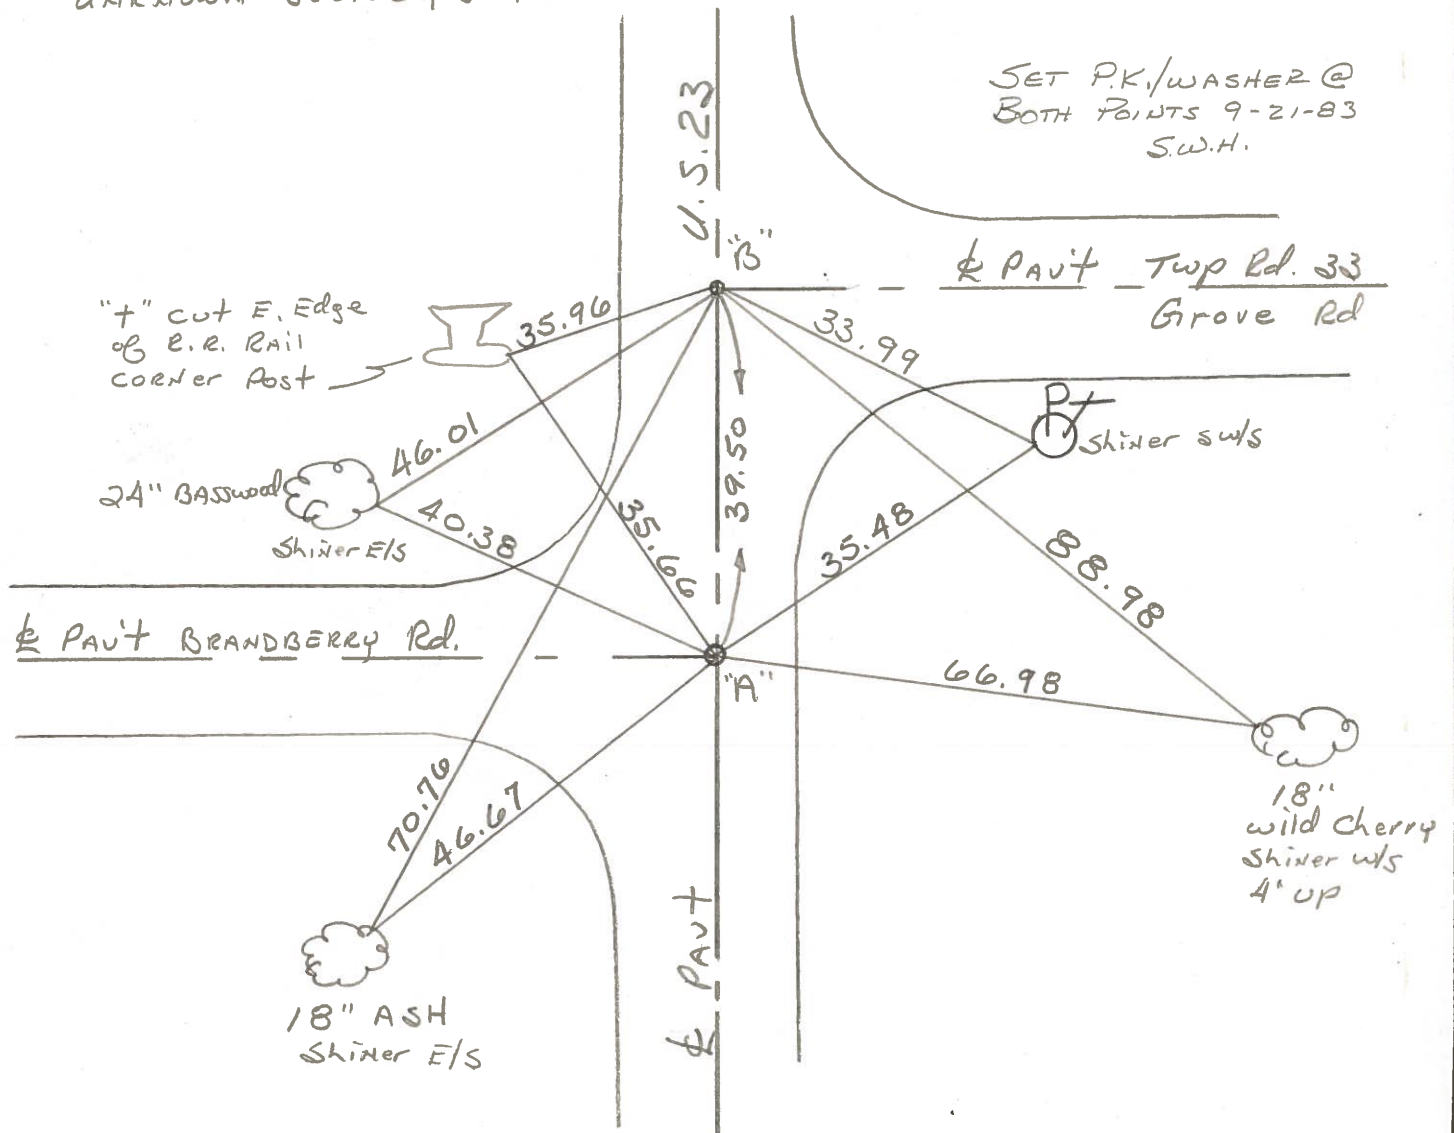 SET P.K./WASHER @
BOTH POINTS 9-21-83
S.W.H.
U.S. 23
"B"
℄ PAV't Twp Rd. 33
Grove Rd
"+" cut E. Edge
of R.R. Rail
CORNER POST
35.96
33.99
P
Shiner SW/S
46.01
39.50
24" BASSwood
Shiner E/S
40.38
35.66
35.48
88.98
℄ PAV't BRANDBERRY Rd.
"A"
66.98
70.76
46.67
18"
wild Cherry
Shiner W/S
4' up
℄ PAVt
18" ASH
Shiner E/S